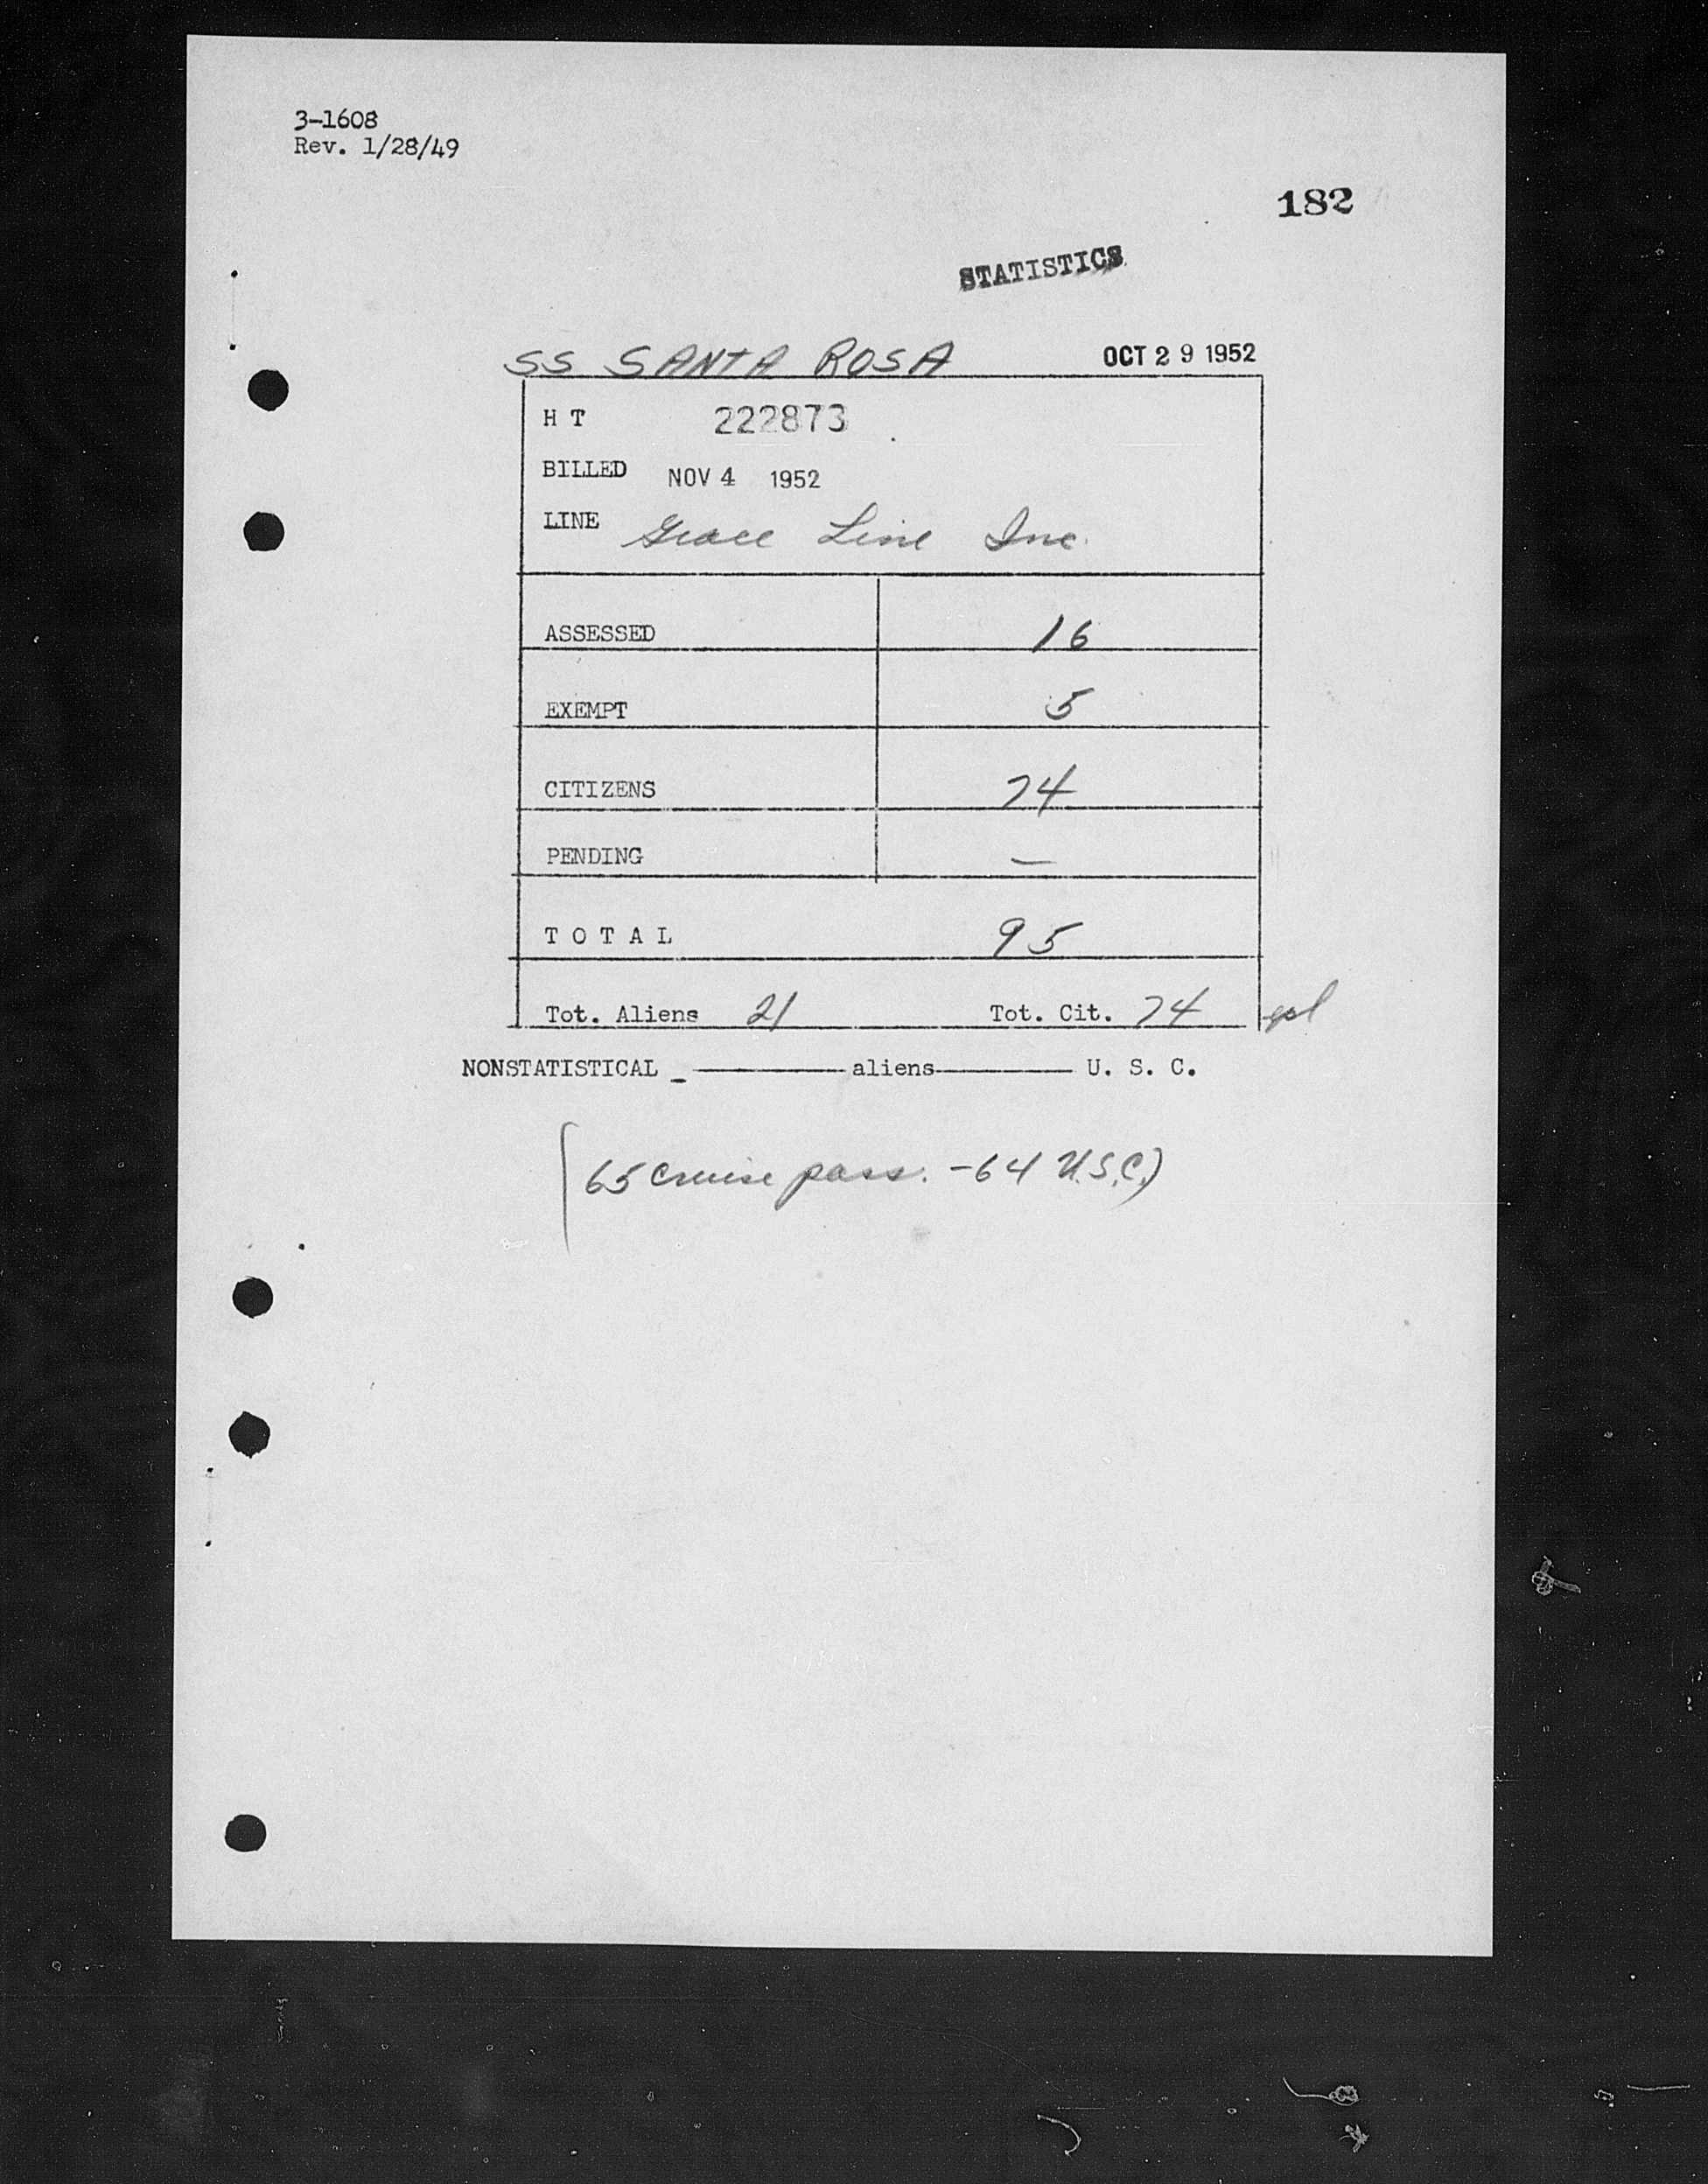 3-1608
Rev. 1/28/49
182
STATISTICS
SS SANTA ROSA OCT 29 1952
H T 222873
BILLED NOV 4 1952
LINE Grace Line Inc.
ASSESSED 16
EXEMPT 5
CITIZENS 74
PENDING —
T O T A L 95
Tot. Aliens 21 Tot. Cit. 74
NONSTATISTICAL _ ———— aliens ———— U. S. C.
(65 cruise pass. - 64 U.S.C.)